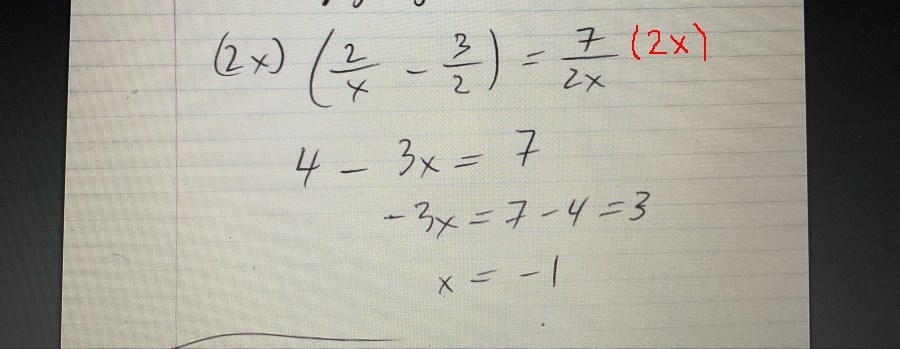 (2x) (2/x - 3/2) = 7/2x (2x)
4 - 3x = 7
-3x = 7 - 4 = 3
x = -1